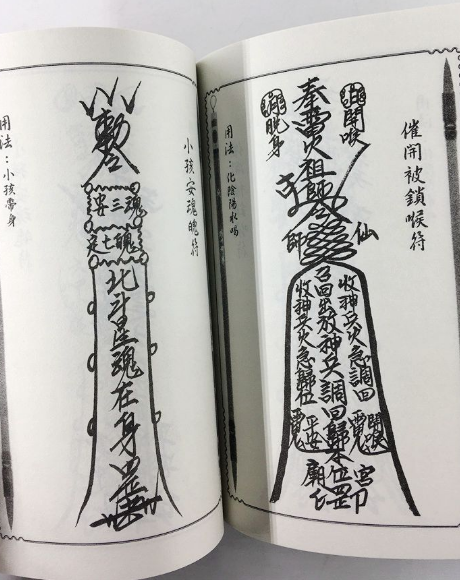 催開被鎖喉符
開喉
奉雷火祖師
脫身
仙
師
收神兵火急調回
召回出放神兵調回歸本位罡
收神兵火急歸位
平安
用法：化陰陽水喝
小孩安魂魄符
敕令
安三魂
定七魄
北斗星魂在身罡
用法：小孩帶身